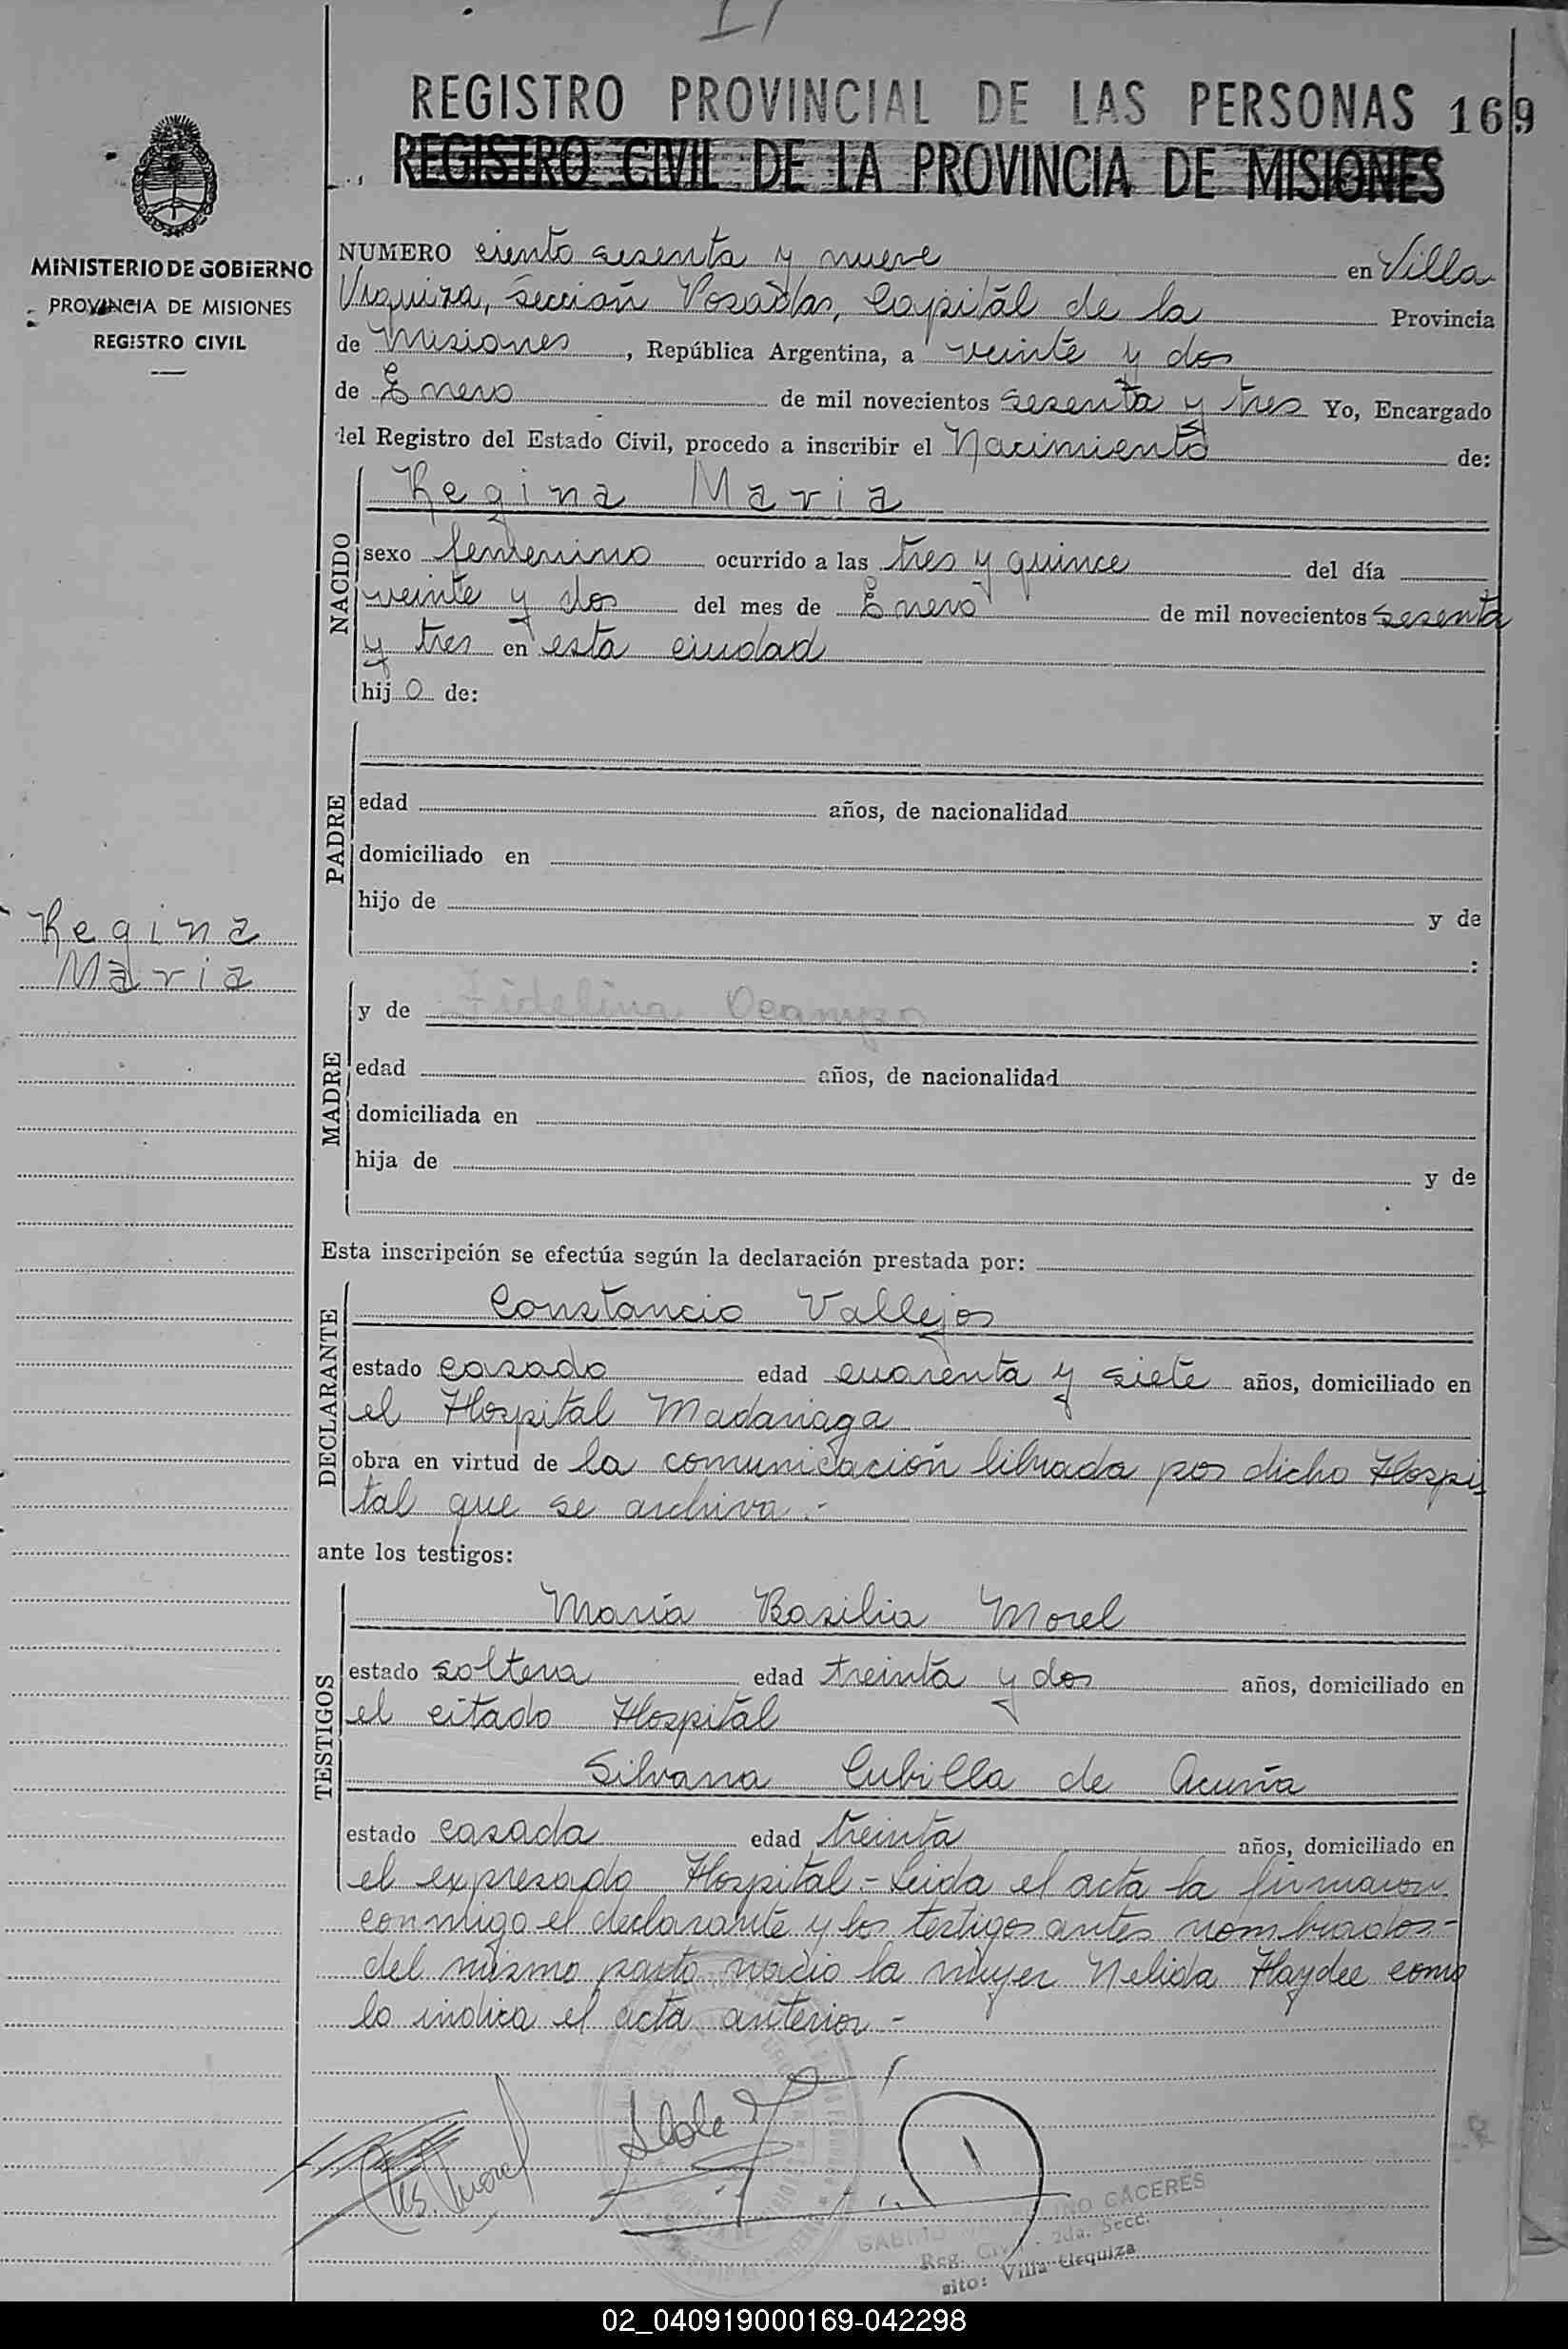 REGISTRO PROVINCIAL DE LAS PERSONAS 169
REGISTRO CIVIL DE LA PROVINCIA DE MISIONES
MINISTERIO DE GOBIERNO
PROVINCIA DE MISIONES
REGISTRO CIVIL
NUMERO ciento sesenta y nueve en Villa
Urquiza, sección Posadas, Capital de la Provincia
de Misiones, República Argentina, a veinte y dos
de Enero de mil novecientos sesenta y tres Yo, Encargado
del Registro del Estado Civil, procedo a inscribir el Nacimiento de:
NACIDO
Regina Maria
sexo femenino ocurrido a las tres y quince del día
veinte y dos del mes de Enero de mil novecientos sesenta
y tres en esta ciudad
hij o de:
PADRE
edad años, de nacionalidad
domiciliado en
hijo de y de
:
Regina
Maria
MADRE
y de Fidelina Ocampo
edad años, de nacionalidad
domiciliada en
hija de y de
Esta inscripción se efectúa según la declaración prestada por:
DECLARANTE
Constancio Vallejos
estado casado edad cuarenta y siete años, domiciliado en
el Hospital Madariaga
obra en virtud de la comunicación librada por dicho Hospi
tal que se archiva.-
ante los testigos:
TESTIGOS
María Basilia Morel
estado soltera edad treinta y dos años, domiciliado en
el citado Hospital
Silvana Cubilla de Acuña
estado casada edad treinta años, domiciliado en
el expresado Hospital.- Leida el acta la firmaron
conmigo el declarante y los testigos antes nombrados-
del mismo parto nació la mujer Nelida Haydee como
lo indica el acta anterior.-
CACERES
Reg. Civ. 2da. Secc.
sito: Villa Urquiza
02_040919000169-042298